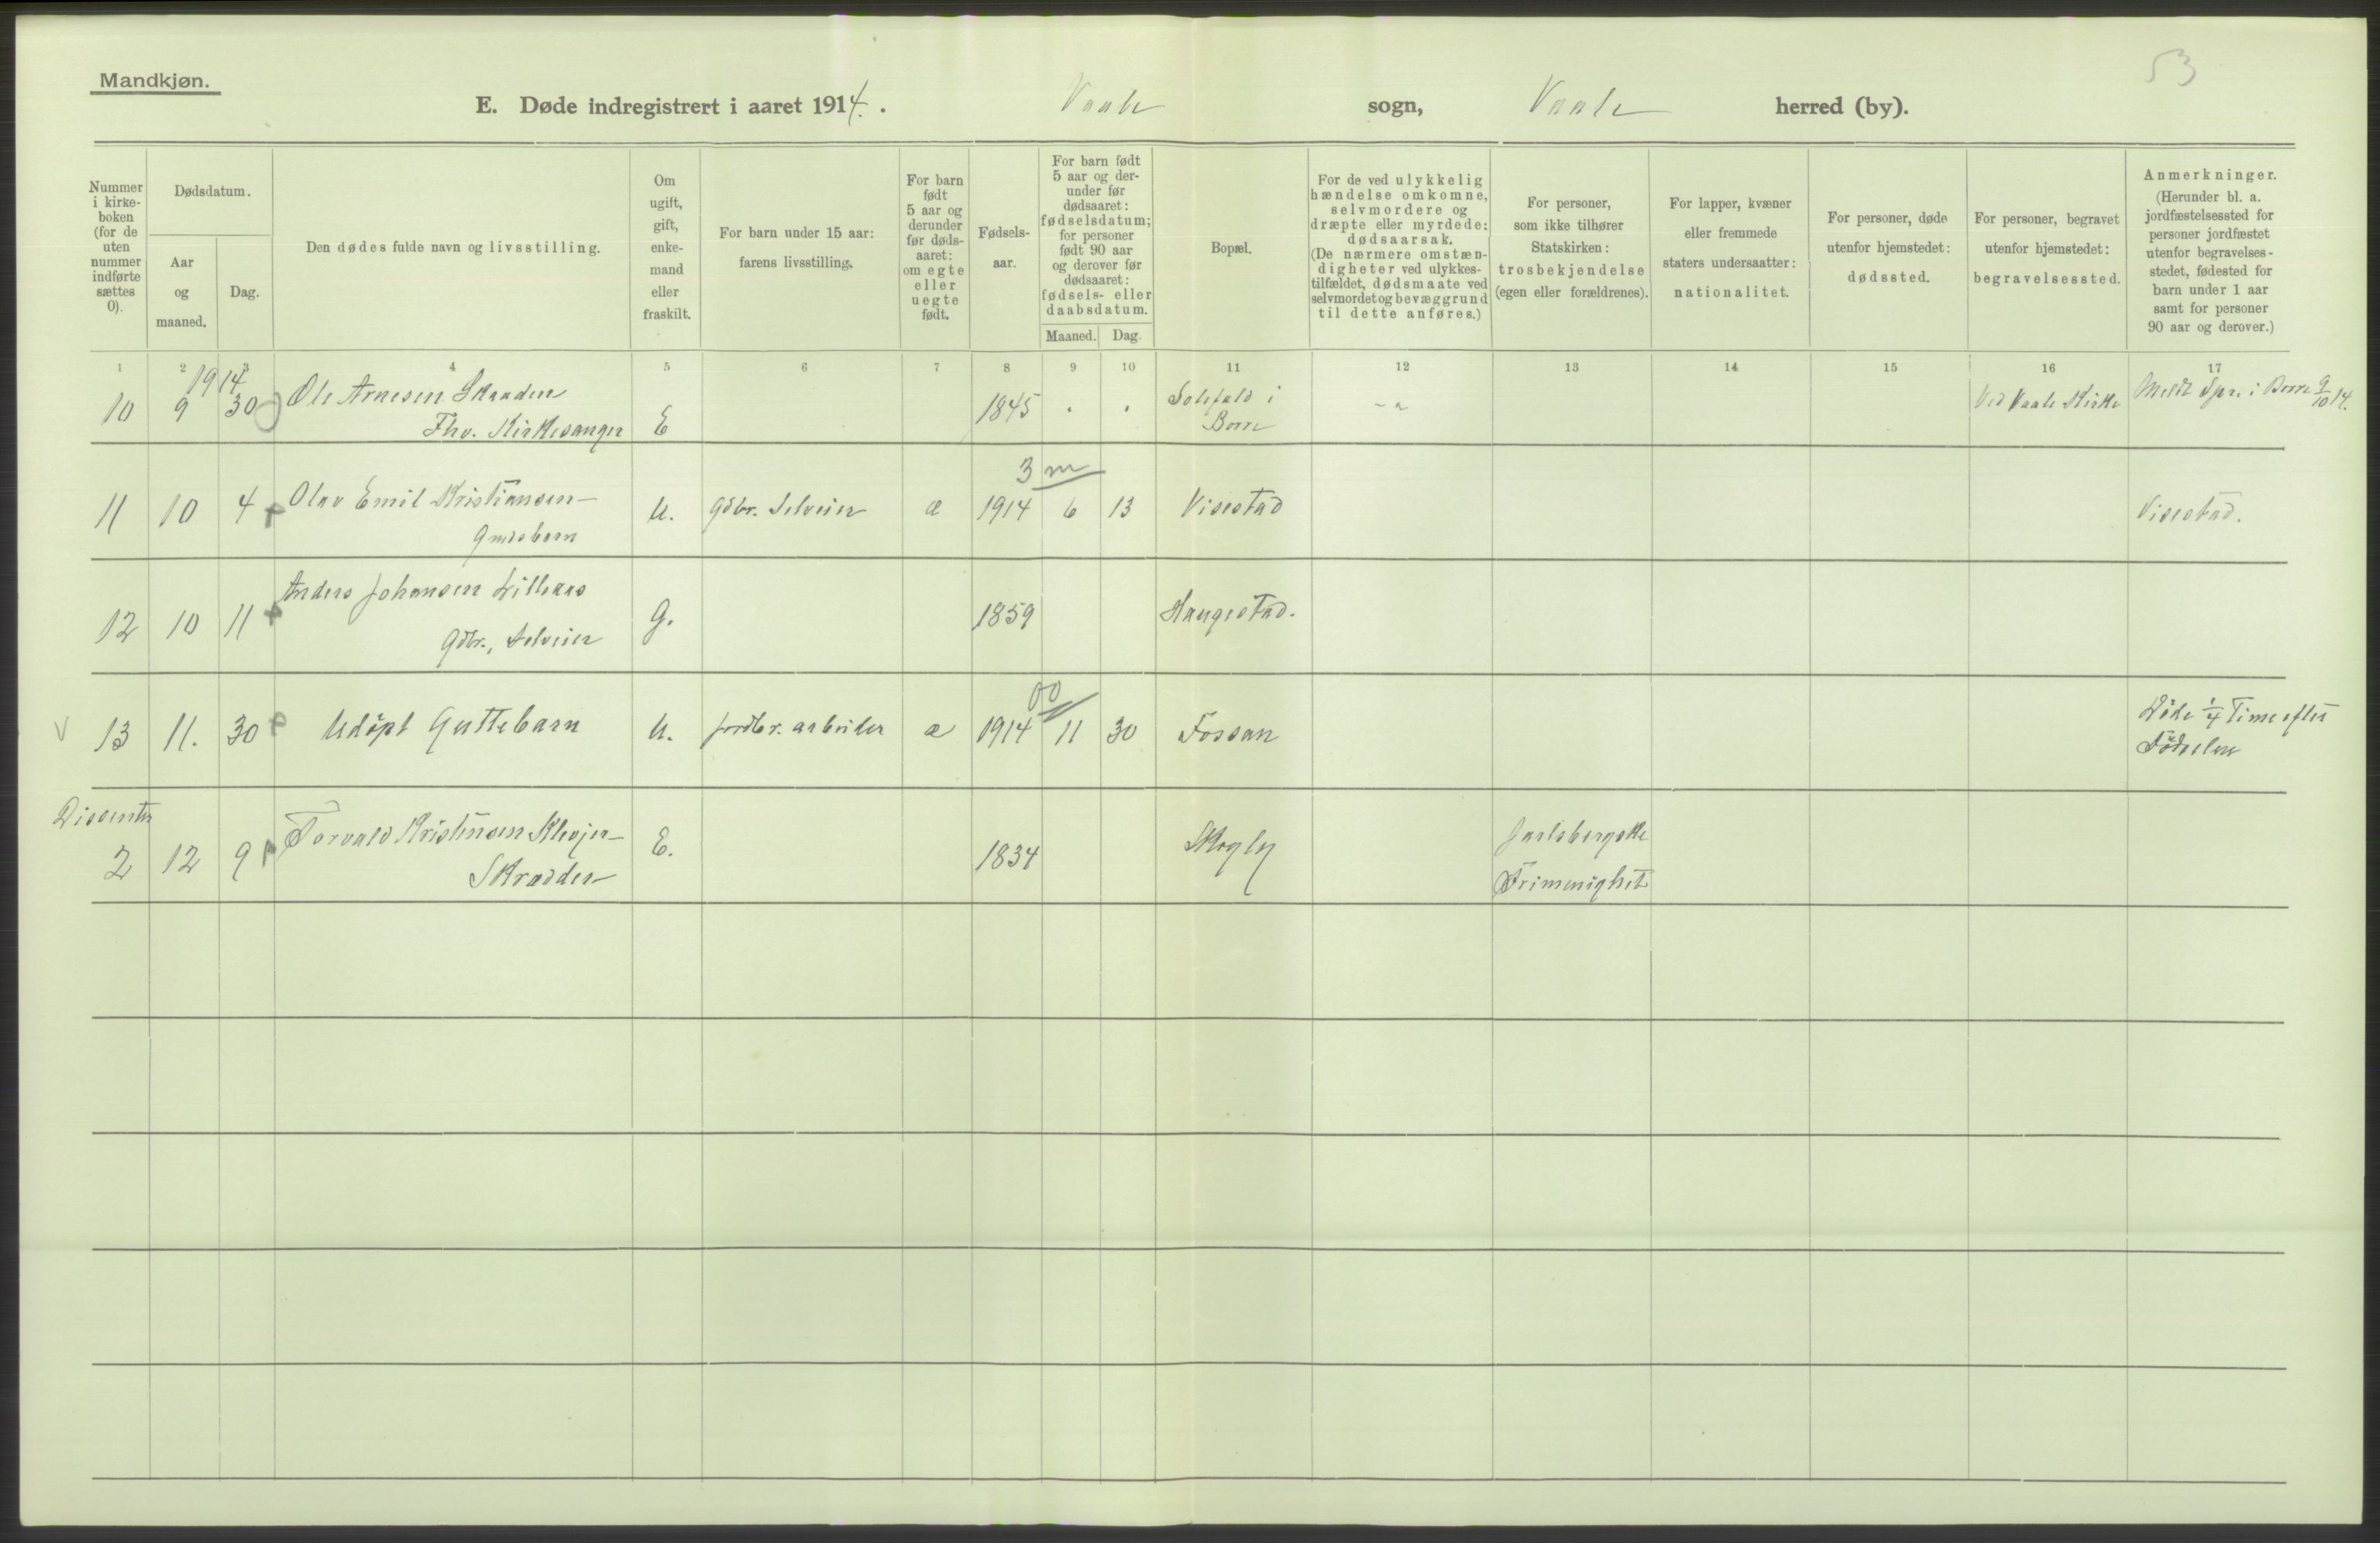 53
Mandkjøn.
E. Døde indregistrert i aaret 1914. Vaale sogn, Vaale herred (by).
Nummer i kirke- boken (for de uten nummer indførte sættes 0).
Dødsdatum.
Aar og maaned.
Dag.
Den dødes fulde navn og livsstilling.
Om ugift, gift, enke- mand eller fraskilt.
For barn under 15 aar: farens livsstilling.
For barn født 5 aar og derunder før døds- aaret: om egte eller uegte født.
Fødsels- aar.
For barn født 5 aar og der- under før dødsaaret: fødselsdatum; for personer født 90 aar og derover før dødsaaret: fødsels- eller daabsdatum.
Maaned. Dag.
Bopæl.
For de ved ulykkelig hændelse omkomne, selvmordere og dræpte eller myrdede: dødsaarsak. (De nærmere omstæn- digheter ved ulykkes- tilfældet, dødsmaate ved selvmordet og bevæggrund til dette anføres.)
For personer, som ikke tilhører Statskirken: trosbekjendelse (egen eller forældrenes).
For lapper, kvæner eller fremmede staters undersaatter: nationalitet.
For personer, døde utenfor hjemstedet: dødssted.
For personer, begravet utenfor hjemstedet: begravelsessted.
Anmerkninger. (Herunder bl. a. jordfæstelsessted for personer jordfæstet utenfor begravelses- stedet, fødested for barn under 1 aar samt for personer 90 aar og derover.)
1 2 3 4 5 6 7 8 9 10 11 12 13 14 15 16 17
1914
10 9 30 Ole Arnesen Skaaden E 1845 Solefald i Ved Vaale Kirke Meldt Spr. i Borre 9/10 14.
Fhv. Kirkesanger Borre
3 m
11 10 4 Olav Emil Kristiansen U. Gdbr. Selveier æ 1914 6 13 Visestad Visestad.
Gmdsbarn
12 10 11 Anders Johansen Lilleaas G. 1859 Haugestad.
Gdbr., Selveier
00
V 13 11. 30 Udöpt Guttebarn U. jordbr. arbeider æ 1914 11 30 Fossan Døde 1/4 Time efter
Födselen
Dissenter
2 12 9 Torvald Kristensen Klevjer E. 1834 Skogly Jarlsbergske
Skrædder Frimenighet